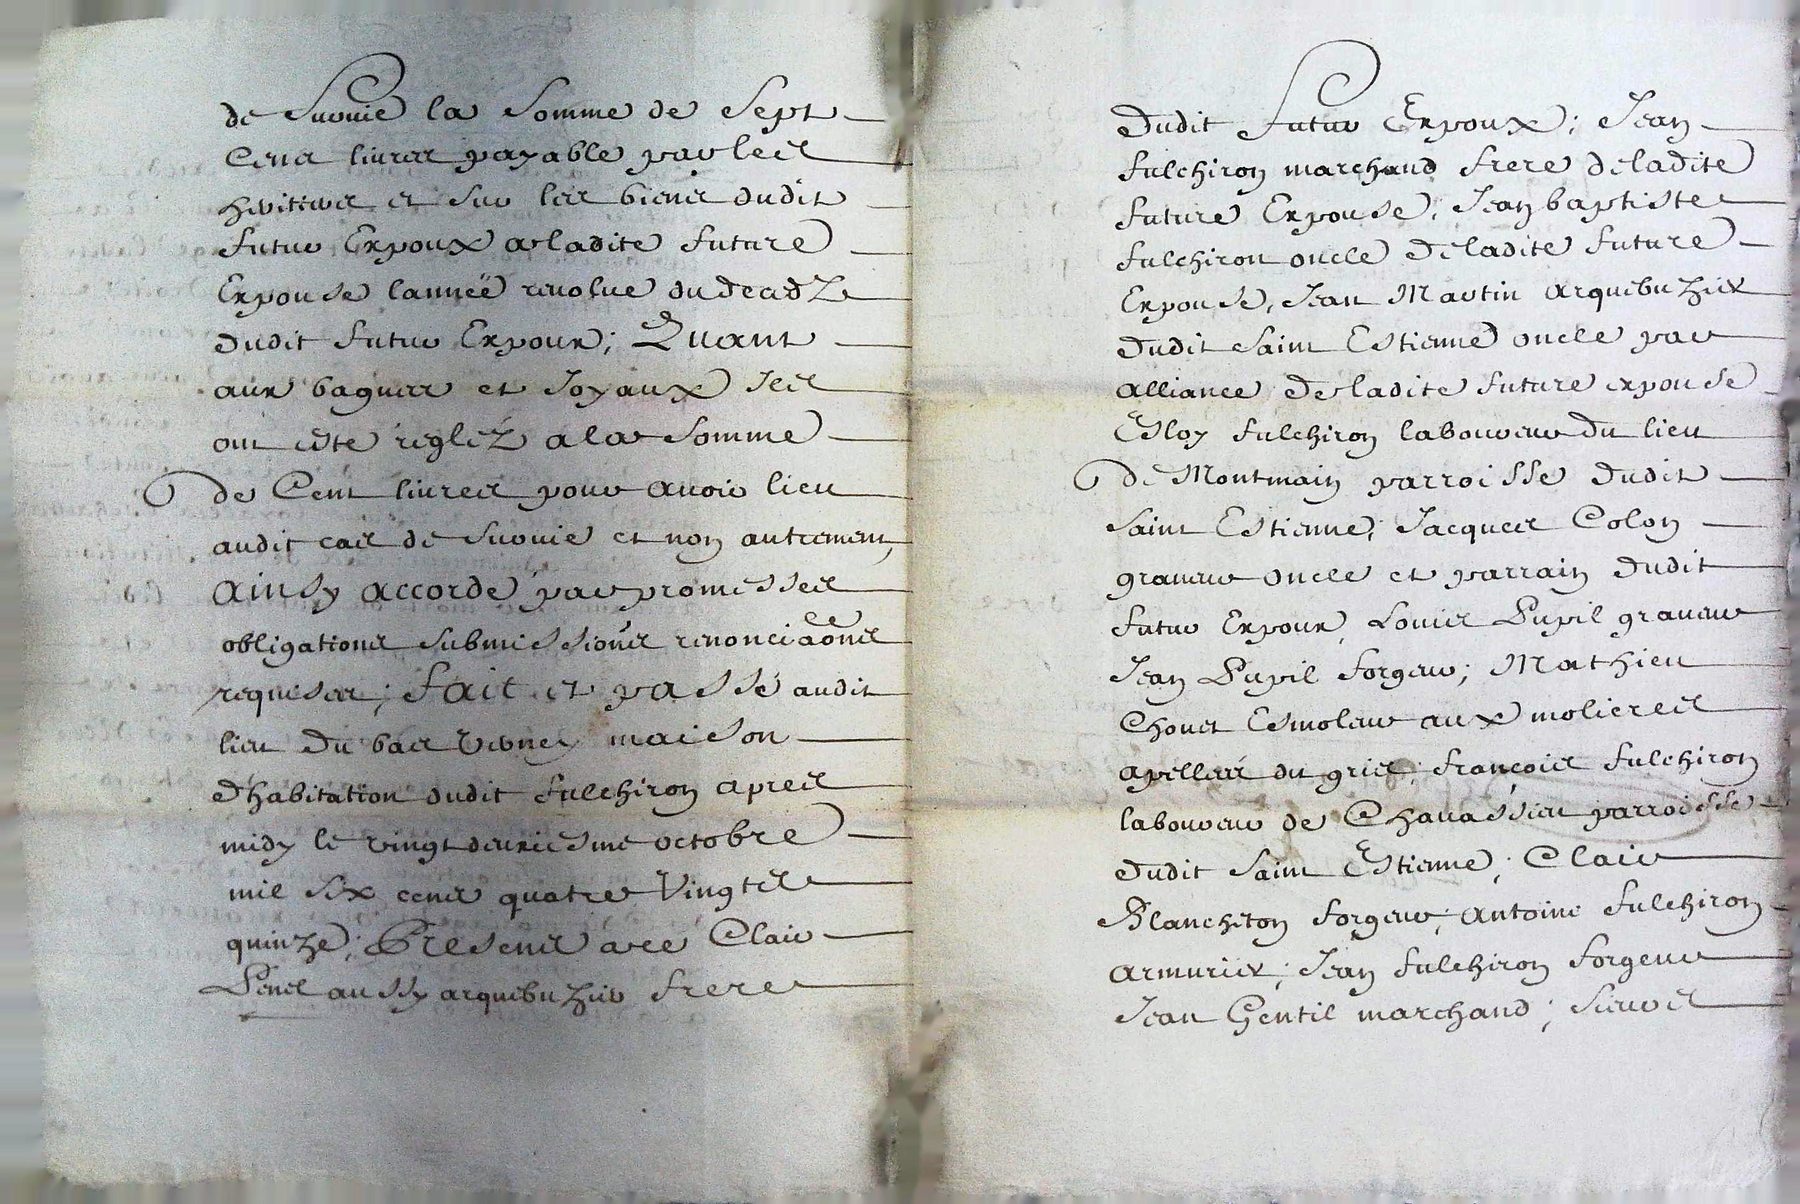 de survie la somme de sept
Cens livres payable par les
heritiers et sur les biens dudit
futur Expoux a ladite future
Expouse l'année revolue du deadz
dudit futur Expoux; Quant
aux bagues et Joyaux Ils
ont esté reglez a la somme
de Cent livres pour avoir lieu
audit cas de survie et non autrement,
Ainsy accordé par promesses
obligations submissions renonciaones
requises; Fait et passé audit
lieu du bas maison
d'habitation dudit fulchiron apres
midy le vingt deuxiesme octobre
mil six cens quatre Vingts
quinze; Presens a ce Clair
Penel aussy arquebuzier frere
dudit futur Expoux; Jean
fulchiron marchand frere de ladite
future Expouse, Jean baptiste
fulchiron oncle de ladite future
Expouse, Jean Martin arquebuzier
dudit Saint Estienne oncle par
alliance de ladite future expouse
Esloy fulchiron laboureur du lieu
de Montmain parroisse dudit
Saint Estienne; Jacques Colon
graveur oncle et parrain dudit
futur Expoux, Louis Pupil graveur
Jean Pupil forgeur; Mathieu
Chovet Esmoleur aux molieres
apellées du gris; françois fulchiron
laboureur de Chavassieu parroisse
dudit Saint Estienne; Clair
Blancheton forgeur; Antoine fulchiron
armurier; Jean fulchiron forgeur
Jean Gentil marchand;